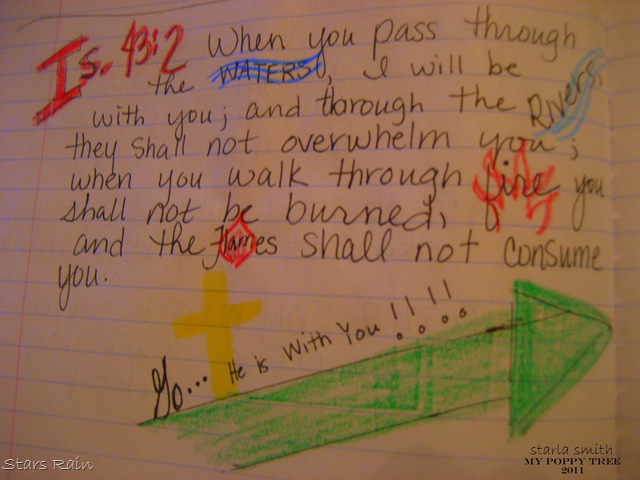 Is. 43:2 When you pass through
the WATERS, I will be
with you; and through the Rivers,
they shall not overwhelm you;
when you walk through fire you
shall not be burned,
and the flames shall not consume
you.
Go... He is With You !!!!
starla smith
MY POPPY TREE
2011
Stars Rain